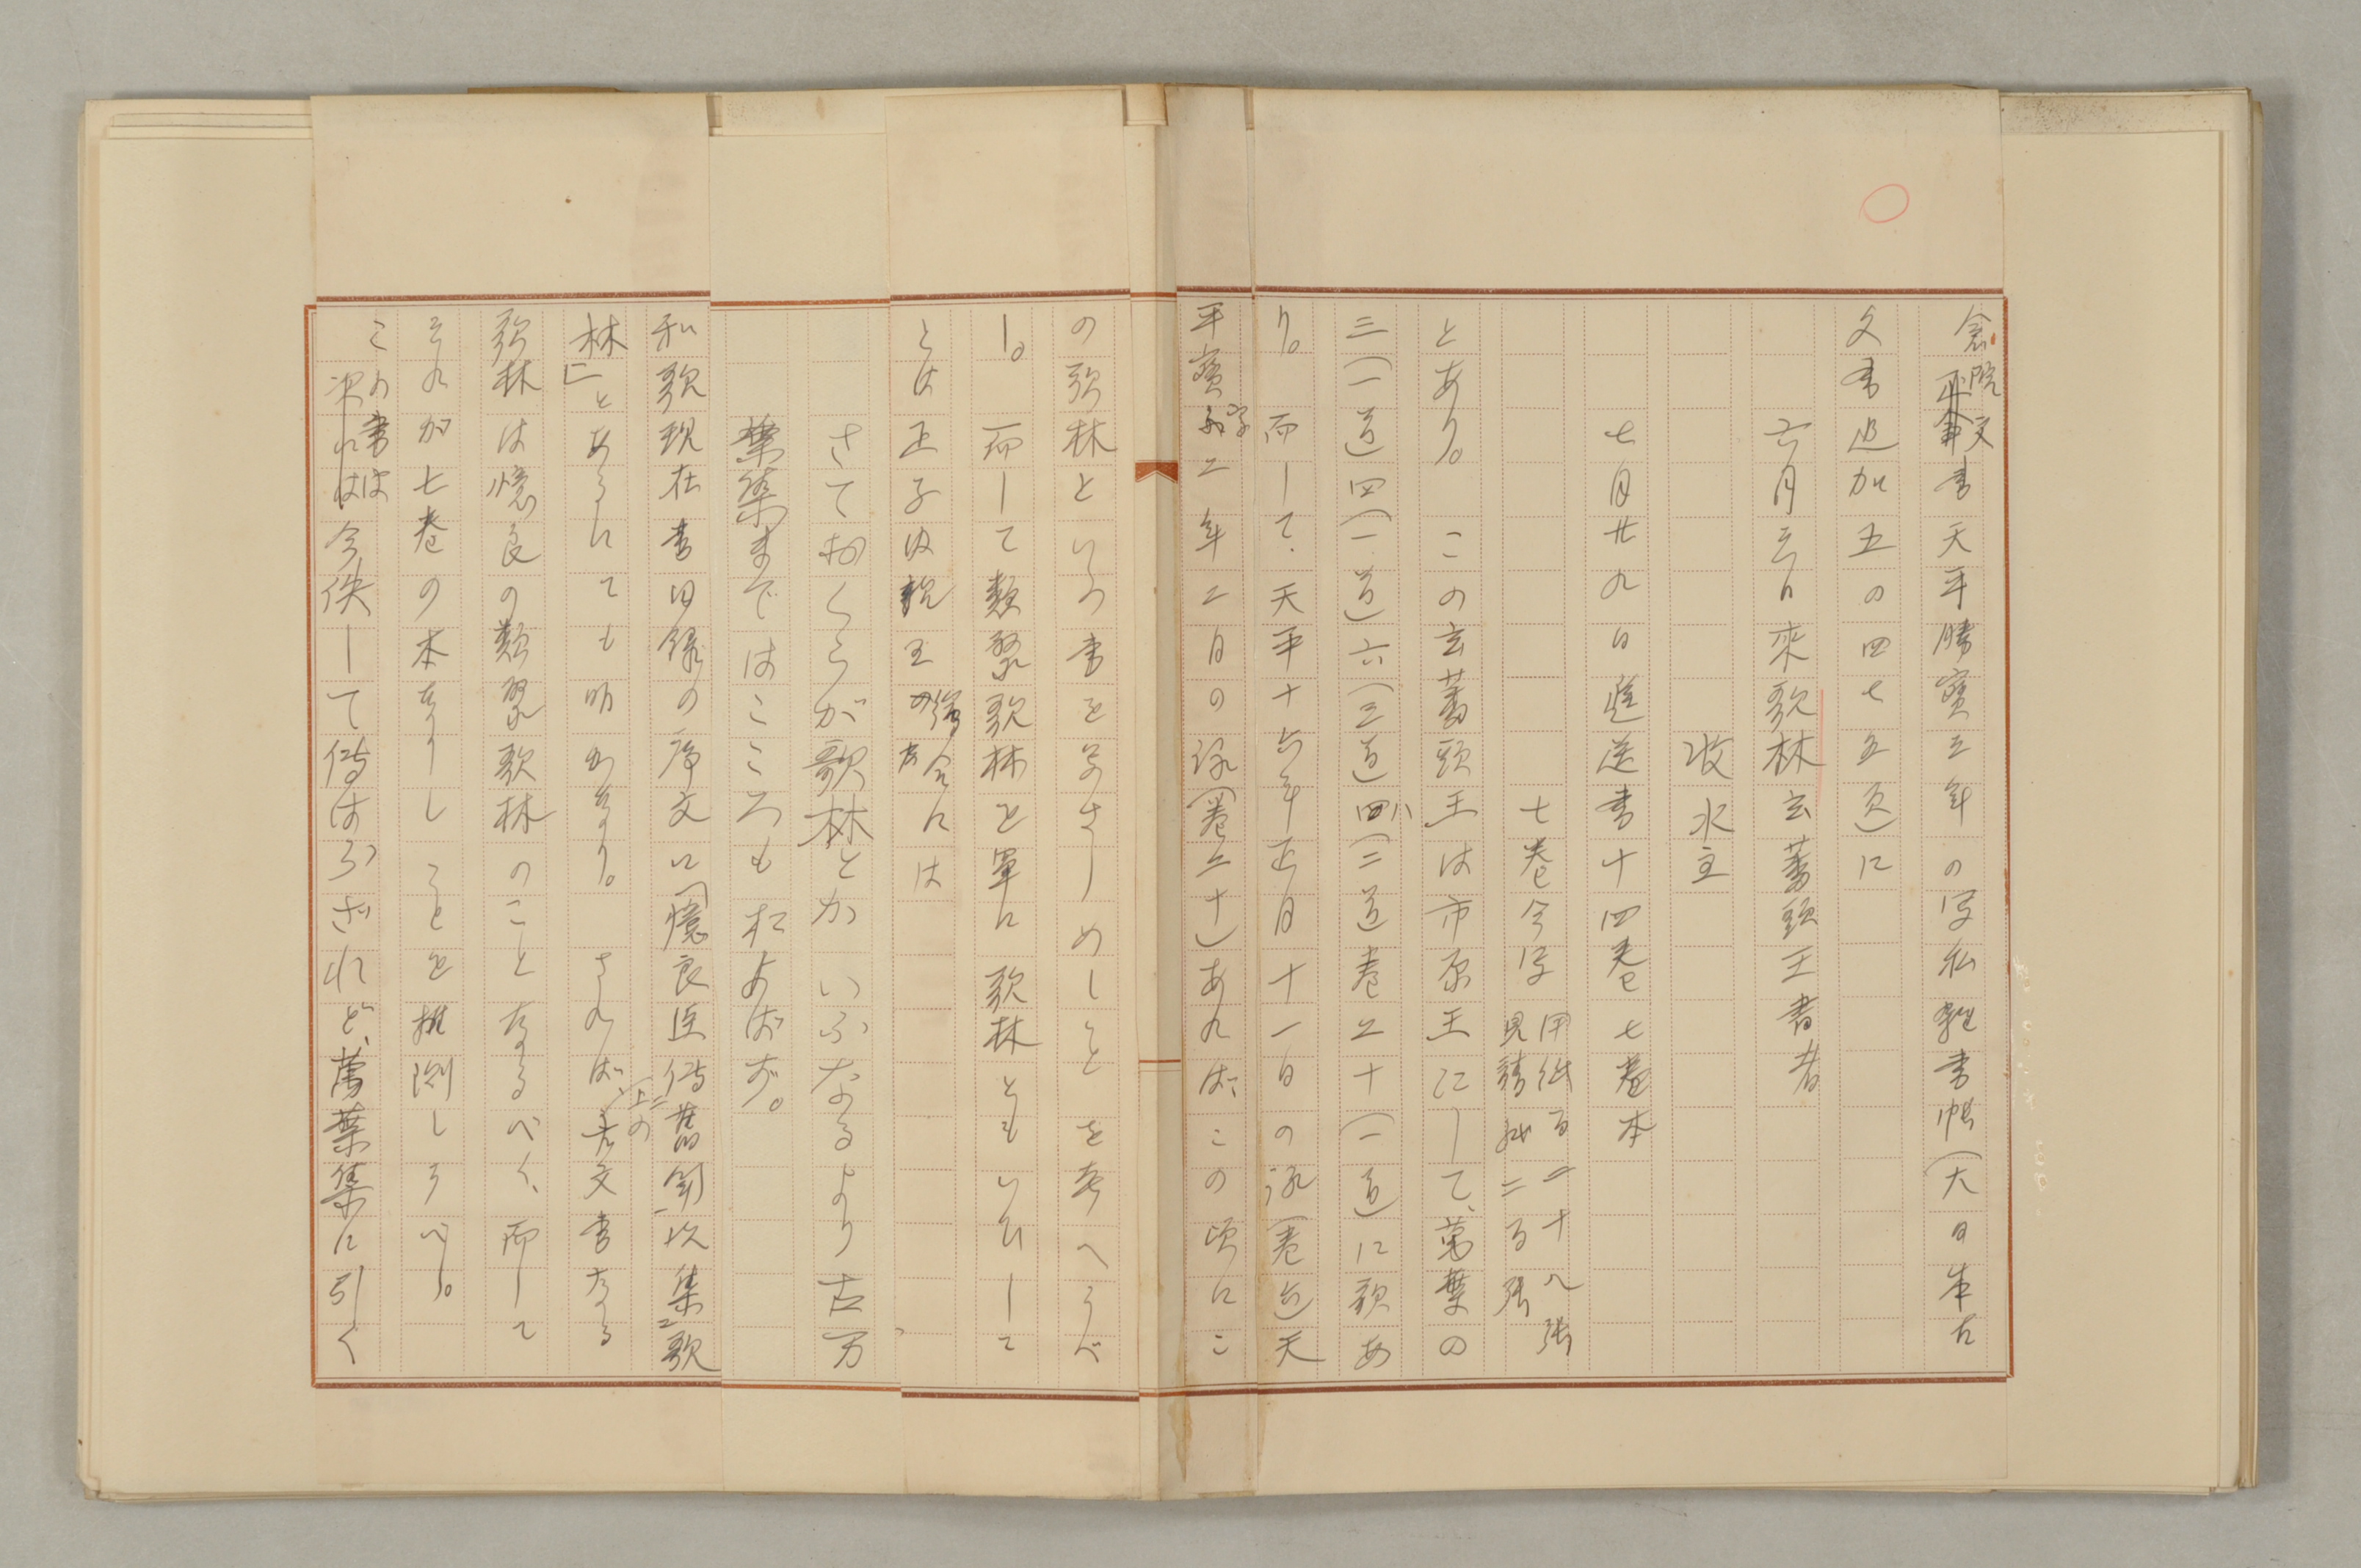 倉院文書天平勝寳三年の写私雜書帳(大日本古
文書追加五の四七五頁)に
六月三日來歌林玄蕃頭王書者
收水主
七月廿九日進送書十四巻七巻本
七巻今写
用紙百二十八張
見請紙二百張
とあり。この玄蕃頭王は市原王にして、萬葉の
三(一首)四(一首)六(三首)八(二首)巻二十(一首)に歌あ
り。而して、天平十六年正月十一日の詠(巻六)天
平寳字二年二月の詠(巻二十)あれば、この頃にこ
の歌林といふ書を写さしめしことを考へうべ
し。而して類聚歌林を單に歌林ともいひして
とは正子内親王繪合には
さておくらが歌林とかいふなるより古万
葉集まではこころもおよばず。
和歌現在書目録の序文に「憶良臣傳舊﻿以集二歌
林」とあるにても明かなり。されば、上の文書なる
歌林は憶良の類聚歌林のことなるべく、而して
それが七巻の本なりしことを推測しうべし。
この書は今佚して傳はらざれど、萬葉集に引く